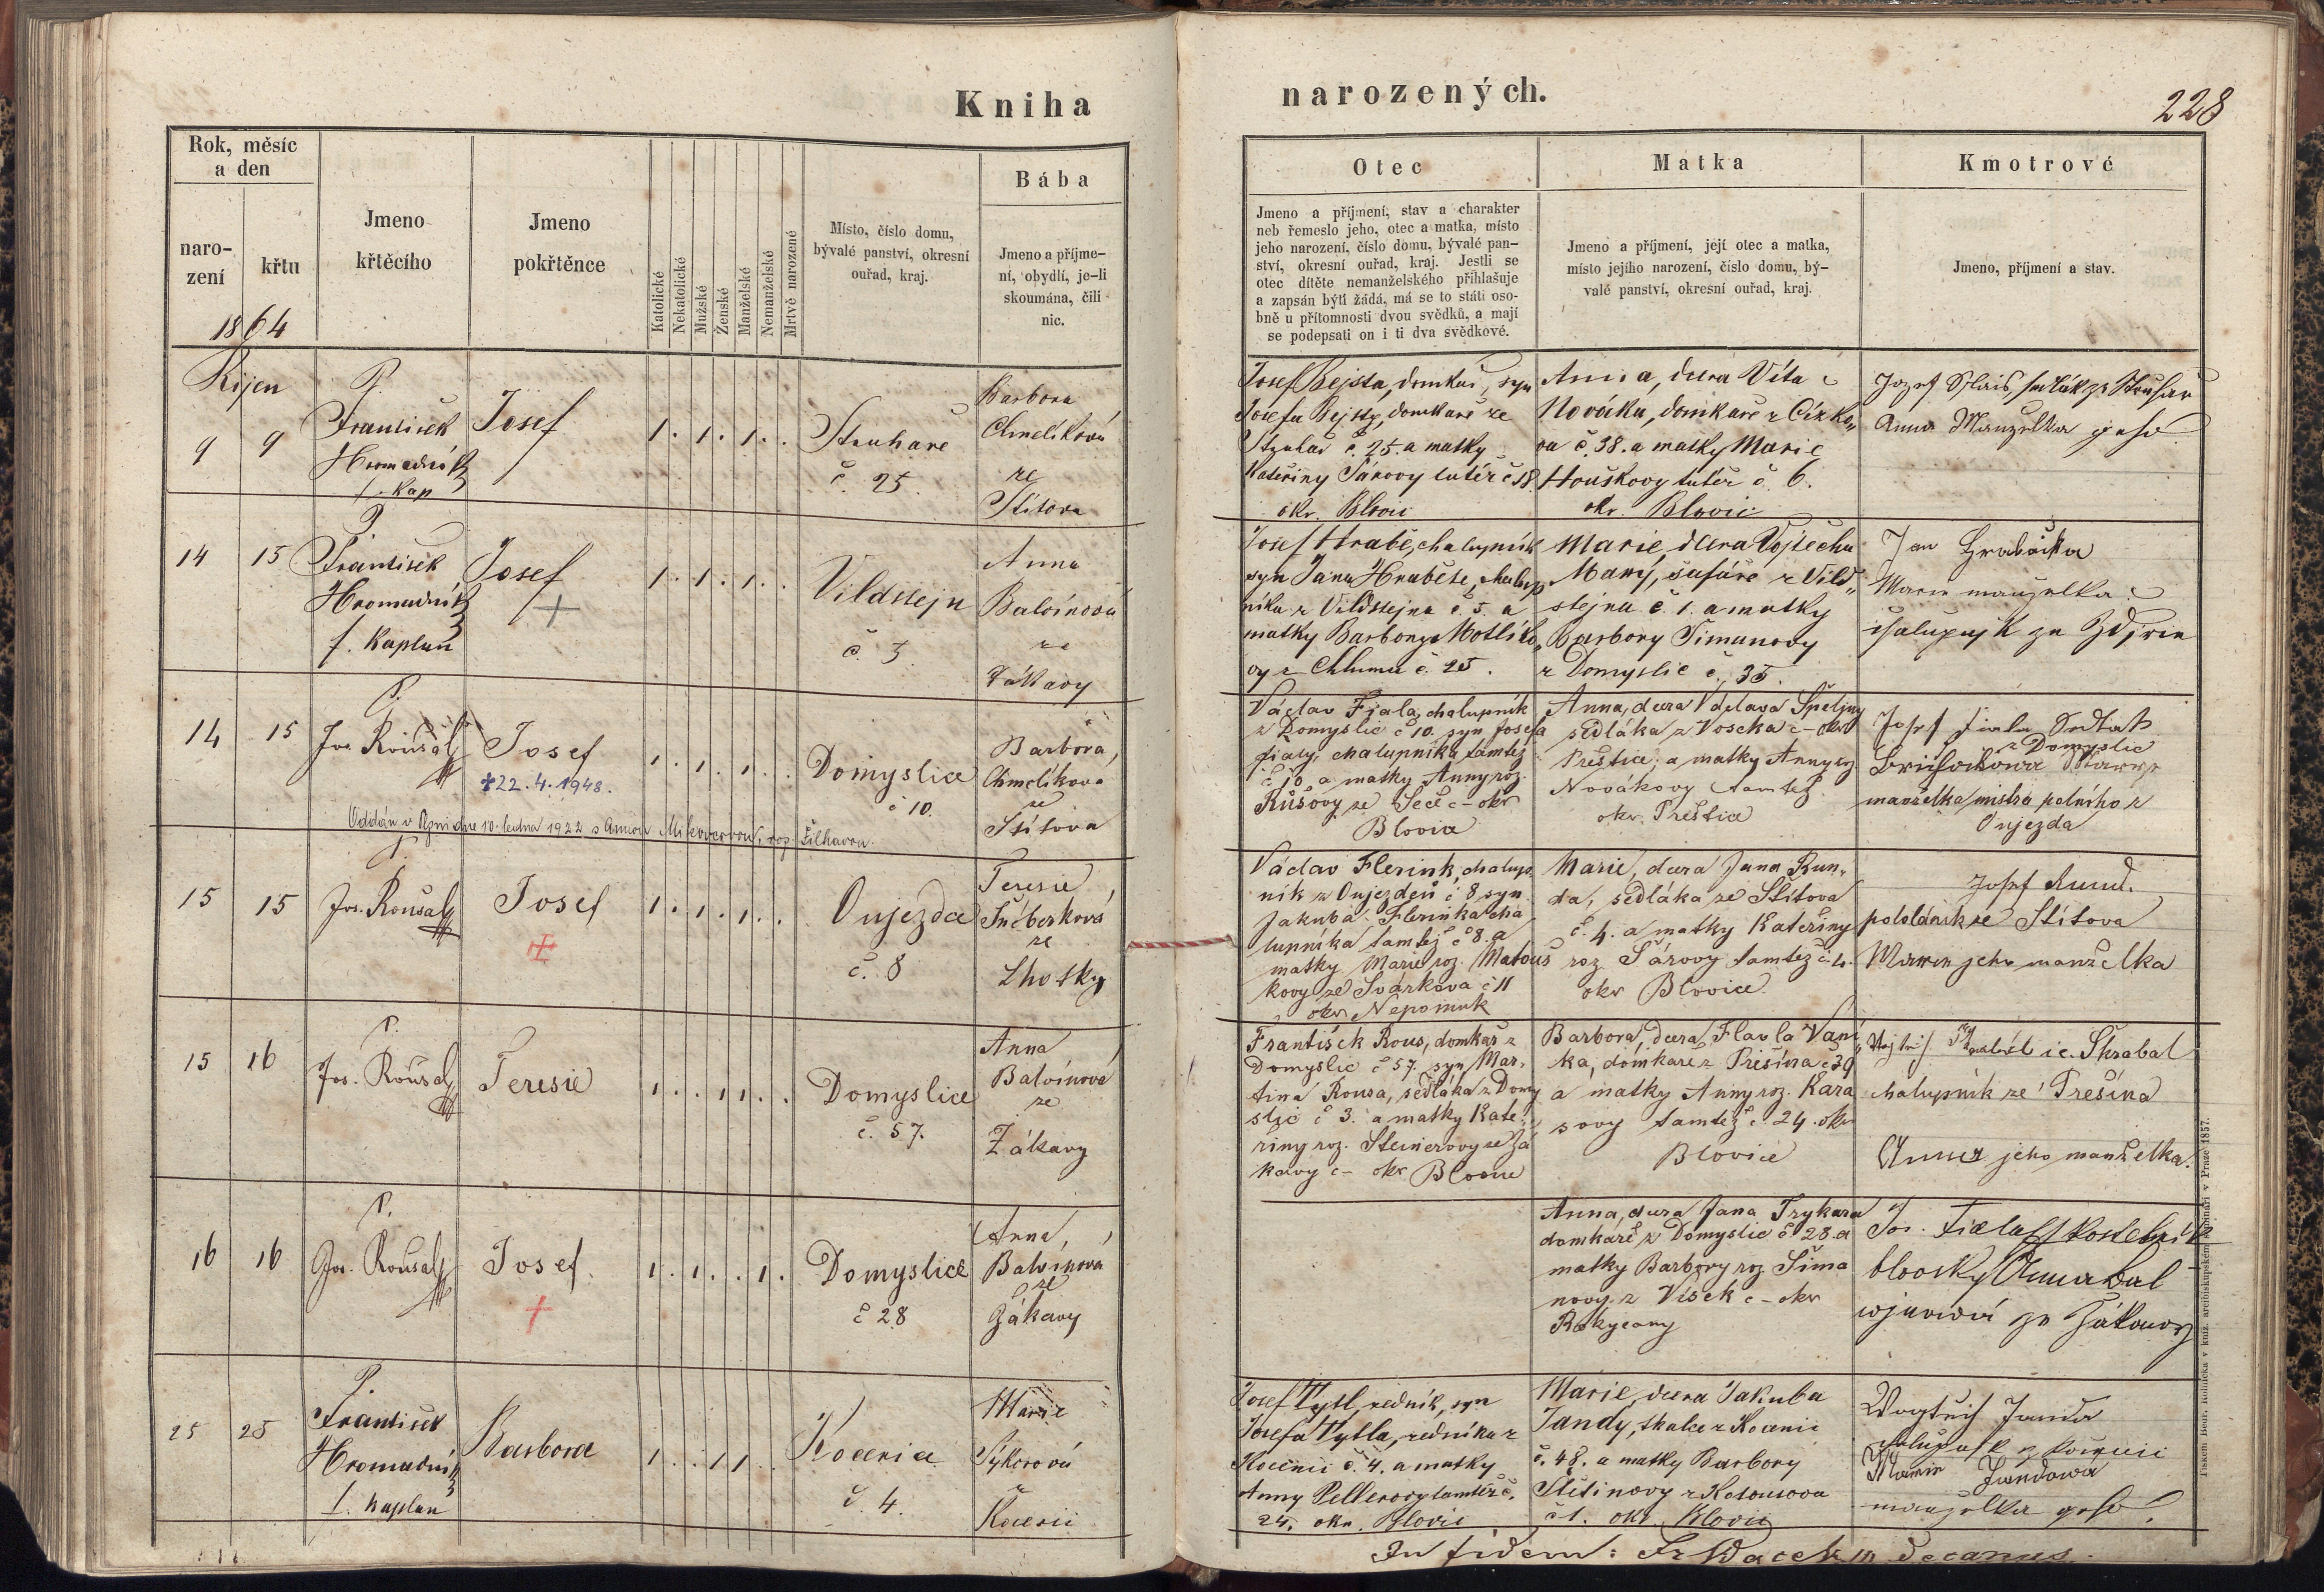 Kniha
narozených.
228
Rok, měsíc
a den
naro-
zení
křtu
1864
Jmeno
křtěcího
Jmeno
pokřtěnce
Katolické
Nekatolické
Mužské
Ženské
Manželské
Nemanželské
Mrtvě narozené
Místo, číslo domu,
bývalé panství, okresní
ouřad, kraj.
Bába
Jmeno a příjme-
ní, obydlí, je-li
skoumána, čili
nic.
Otec
Jmeno a příjmení, stav a charakter
neb řemeslo jeho, otec a matka, místo
jeho narození, číslo domu, bývalé pan-
ství, okresní ouřad, kraj. Jestli se
otec dítěte nemanželského přihlašuje
a zapsán býti žádá, má se to státi oso-
bně u přítomnosti dvou svědků, a mají
se podepsati on i ti dva svědkové.
Matka
Jmeno a příjmení, její otec a matka,
místo jejího narození, číslo domu, bý-
valé panství, okresní ouřad, kraj.
Kmotrové
Jmeno, příjmení a stav.
Říjen
9 9
P.
František
Hromadník
f. Kap
Josef
1. 1. 1. .
Struhaře
č. 25.
Barbora
Chmelíková
ze
Štítova
Josef Bejsta, domkař, syn
Josefa Bejsty, domkaře ze
Struhař č. 25. a matky
Kateřiny Šárovy tutéž č 18.
okr. Blovic
Anna, dcera Víta
Nováka, domkaře z Cízko„
va č. 38. a matky Marie
Houškovy tutéž č. 6.
okr. Blovic
Anna Manzelka geho
14 15
P.
František
Hromadník
f. Kaplan
Josef
1. 1. 1. .
Vildstejn
č. 5.
Anna
Balvínová
ze
Žákavy
Josef Hrabě, chalupník
syn Jana Hraběte, chalup
níka z Vildstejna č. 5. a
matky Barbory Motlíko„
vy z Chlumu č. 25.
Marie, dcera Vojtěcha
Mawý, šafáře z Vild„
stejna č. 1. a matky
Barbory Šimanovy
z Domyslic č. 35.
Jan Hrabačka
Marie manzelka
14 15
P.
Jos. Roušal
Josef
+22.4.1948.
1. 1. 1. .
Domyslice
č 10.
Barbora,
Chmelíkova
ze
Štítova
Oddán v Plzni dne 10. ledna 1922 s Annou
Václav Fiala, chalupník
z Domyslic č 10. syn Josefa
Fialy, chalupníka tamtéž
č 10 a matky Anny roz.
Růšovy ze Seče č- okr
Blovice
Anna, dcera Václava Špeliny
sedláka z Vosecka č- okr
Přeštice, a matky Anny roz
Novákovy tamtéž
okr. Přeštice
Josef Fiala Sedlák
z Domyslic
manželka mistra polního z
Oujezda
15 15
P.
Jos. Roušal
Josef
1. 1. 1. .
Oujezda
č. 8
Teresie
ze
Lhotky
Václav Flerink, chalup.
ník z Oujezden č 8 syn
Jakuba Flerinka cha
lupníka tamtéž č 8. a
matky Marie roz. Matouš
kovy ze Svárkova č 11
okr Nepomuk
Marie, dcera Jana Run„
da, sedláka ze Štítova
č. 4. a matky Kateřiny
roz. Šárovy tamtéž č. 4.
okr Blovice
Josef Rund.
pololáník ze Štítova
Marie jeho manželka
15 16
P.
Jos. Roušal
Teresie
1. . 1 1. .
Domyslice
č. 57.
Anna
Balvínová
ze
Žákavy
František Rous, domkař z
Domyslic č 57. syn Mar.
tina Rousa, sedláka z Domy
slic č 3. a matky Kate„
řiny roz. Steinerovy ze Žá
kavy č- okr Blovice
Barbora, dcera Pavla Vaní„
ka, domkaře z Přešína č 39
a matky Anny roz. Kara
sovy tamtéž č. 24. okr
Blovice
i.e. Škrabal
chalupník ze Přešína
Anna jeho manželka.
16 16
P.
Jos. Roušal
Josef.
1. 1. . 1.
Domyslice
č 28
Anna,
Balvínová
ze
Žákavy
Anna, dcera Jana Trykara
domkaře z Domyslic č 28. a
matky Barbory roz Šima
novy z Vísek č- okr
Rokycany
Jos. Fiala kostelník
blovsky Anna Bal
wjnowá ze Žákowy
25 25
P.
František
Hromadník
f. Kaplan
Barbora
1. . 1 1. .
Kocenice
č. 4.
Marie
Sýkorová
z
Kocenic
Josef Tytl, ředník, syn
Josefa Tytla, ředníka z
Kocenic č. 4. a matky
Anny Pellerovy tamtéž č.
24. okr. Blovic
Marie, dcera Jakuba
Jandy, tkalce z Kocenic
č. 48. a matky Barbory
Štětinovy z Kotousova
č 1. okr. Blovic
Wogtěch Janda
Marie Jandowá
manzelka geho
In fidem: Fr Wacek decanus.